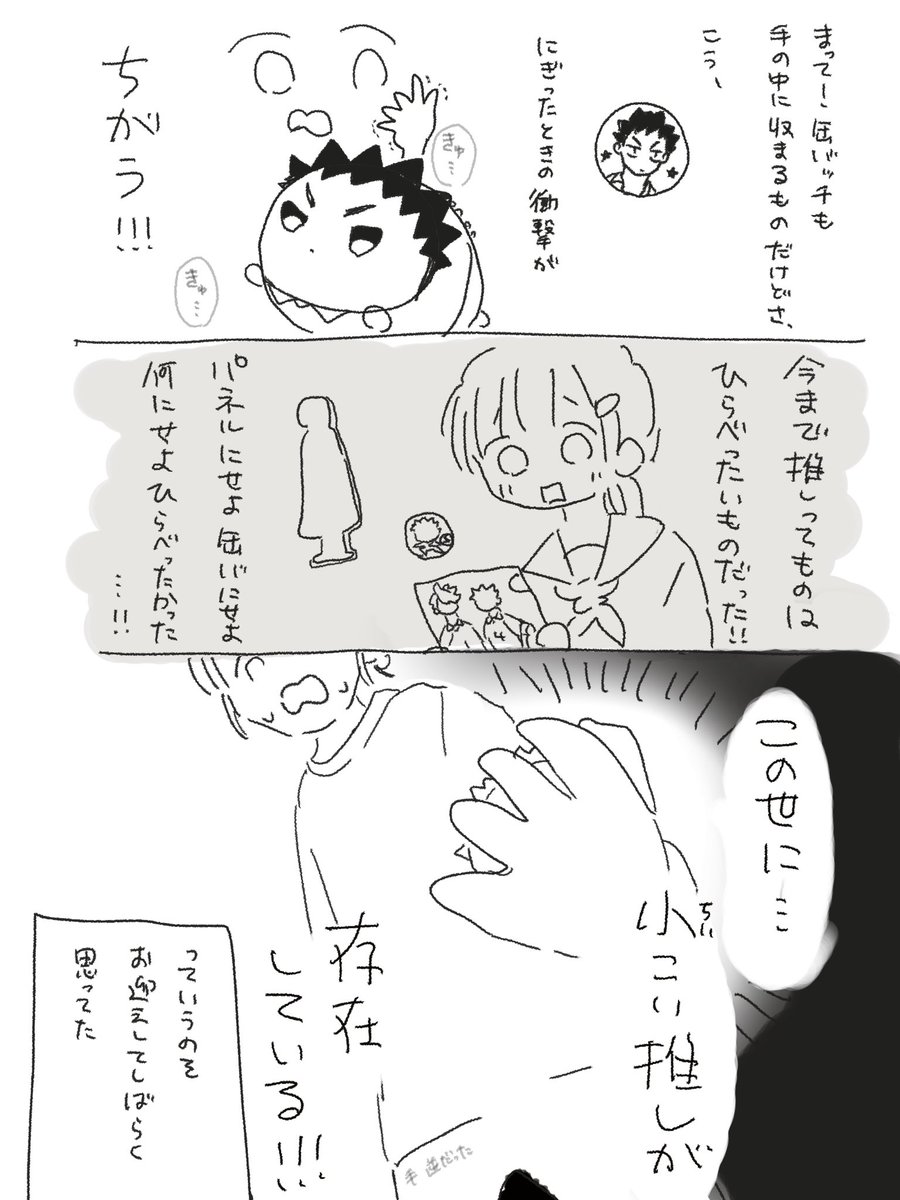 まって〜缶バッチも
手の中に収まるものだけどさ、
こう〜
にぎったときの衝撃が
きゅ…
ちがう!!!
きゅ…
今まで推しってものは
ひらべったいものだった!!
パネルにせよ缶バにせよ
何にせよひらべったかった
…!!
この世に…
小こい推しが
ちい
存在
している!!!
手逆だった
っていうのを
お迎えしてしばらく
思ってた